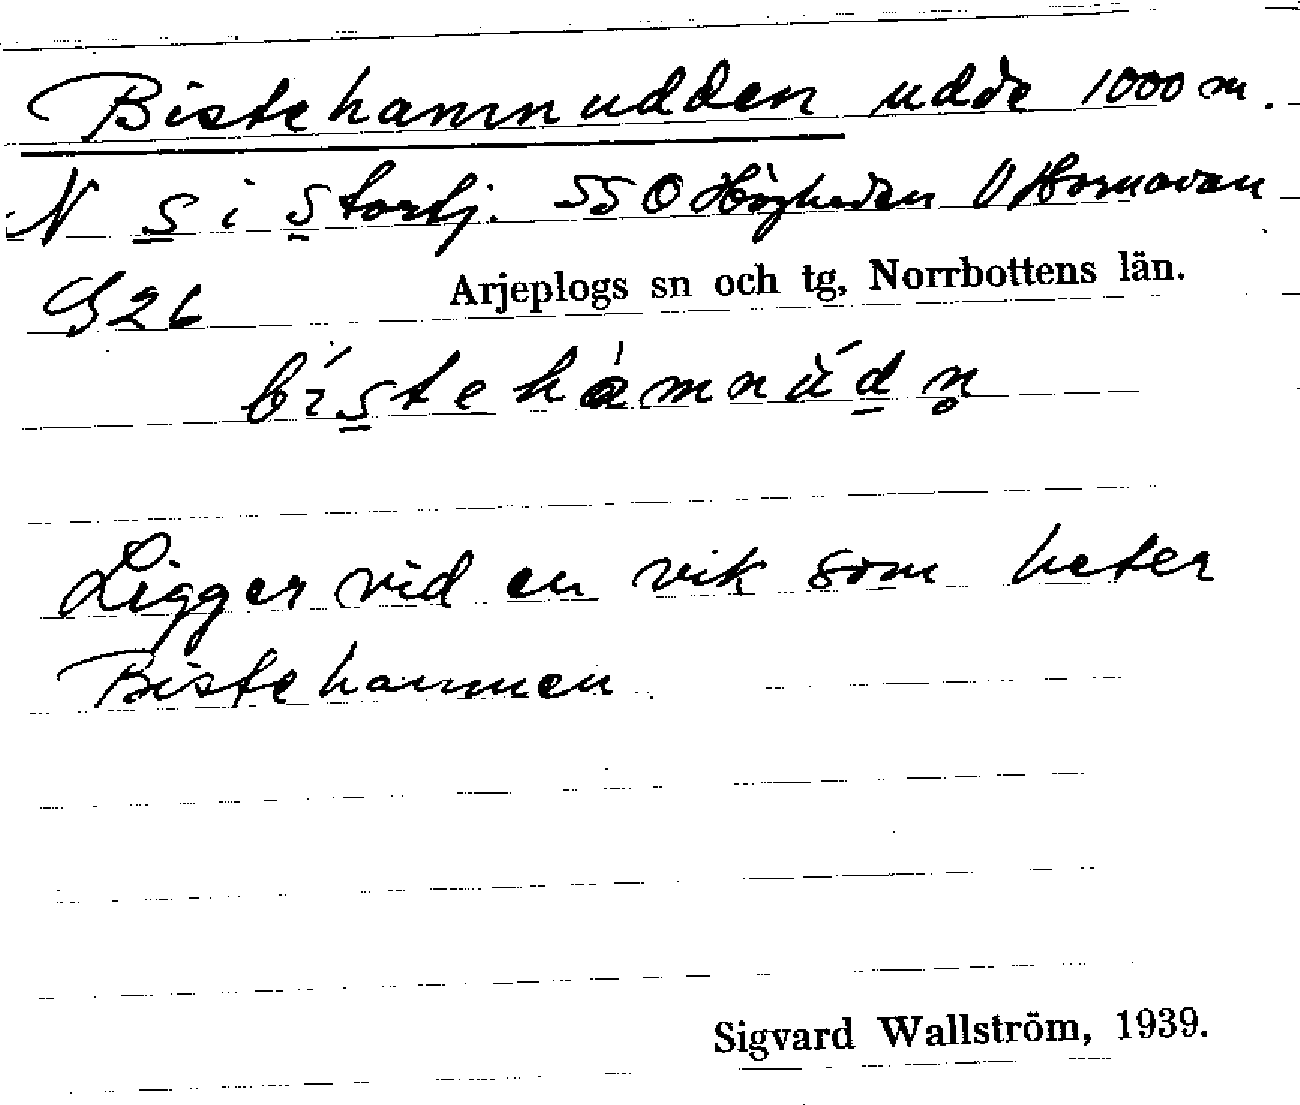 Bistehamnudden udde 1000 m.
N S i Stortj. SSO Högheden V Hornavan
Arjeplogs sn och tg, Norrbottens län.
bístehámnúdn̥
Ligger vid en vik som heter
Bistehamnen
Sigvard Wallström, 1939.